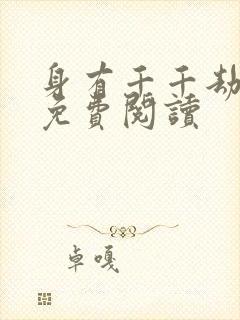 身有千千劫
免費閱讀
卓嘎